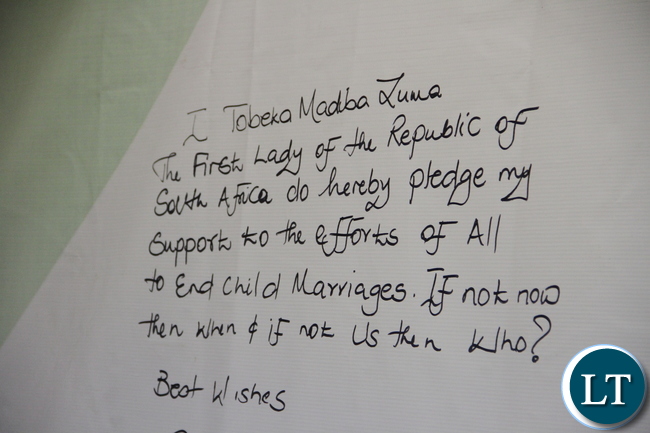 I Tobeka Madiba Zuma
The First Lady of the Republic of
South Africa do hereby pledge my
support to the efforts of All
to End Child Marriages. If not now
then when & if not Us then Who?
Best Wishes
LT